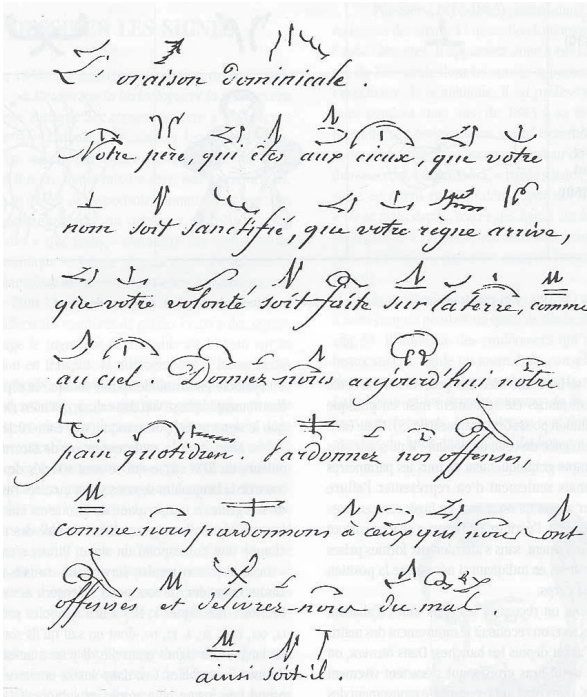 L'oraison Dominicale
Notre père, qui êtes aux cieux, que votre
nom soit sanctifié, que votre règne arrive,
que votre volonté, soit faite sur la terre, comme
au ciel. Donnez-nous aujourd'hui notre
pain quotidien. Pardonnez nos offenses,
comme nous pardonnons à ceux qui nous ont
offensés et delivrez-nous du mal.
ainsi soit il